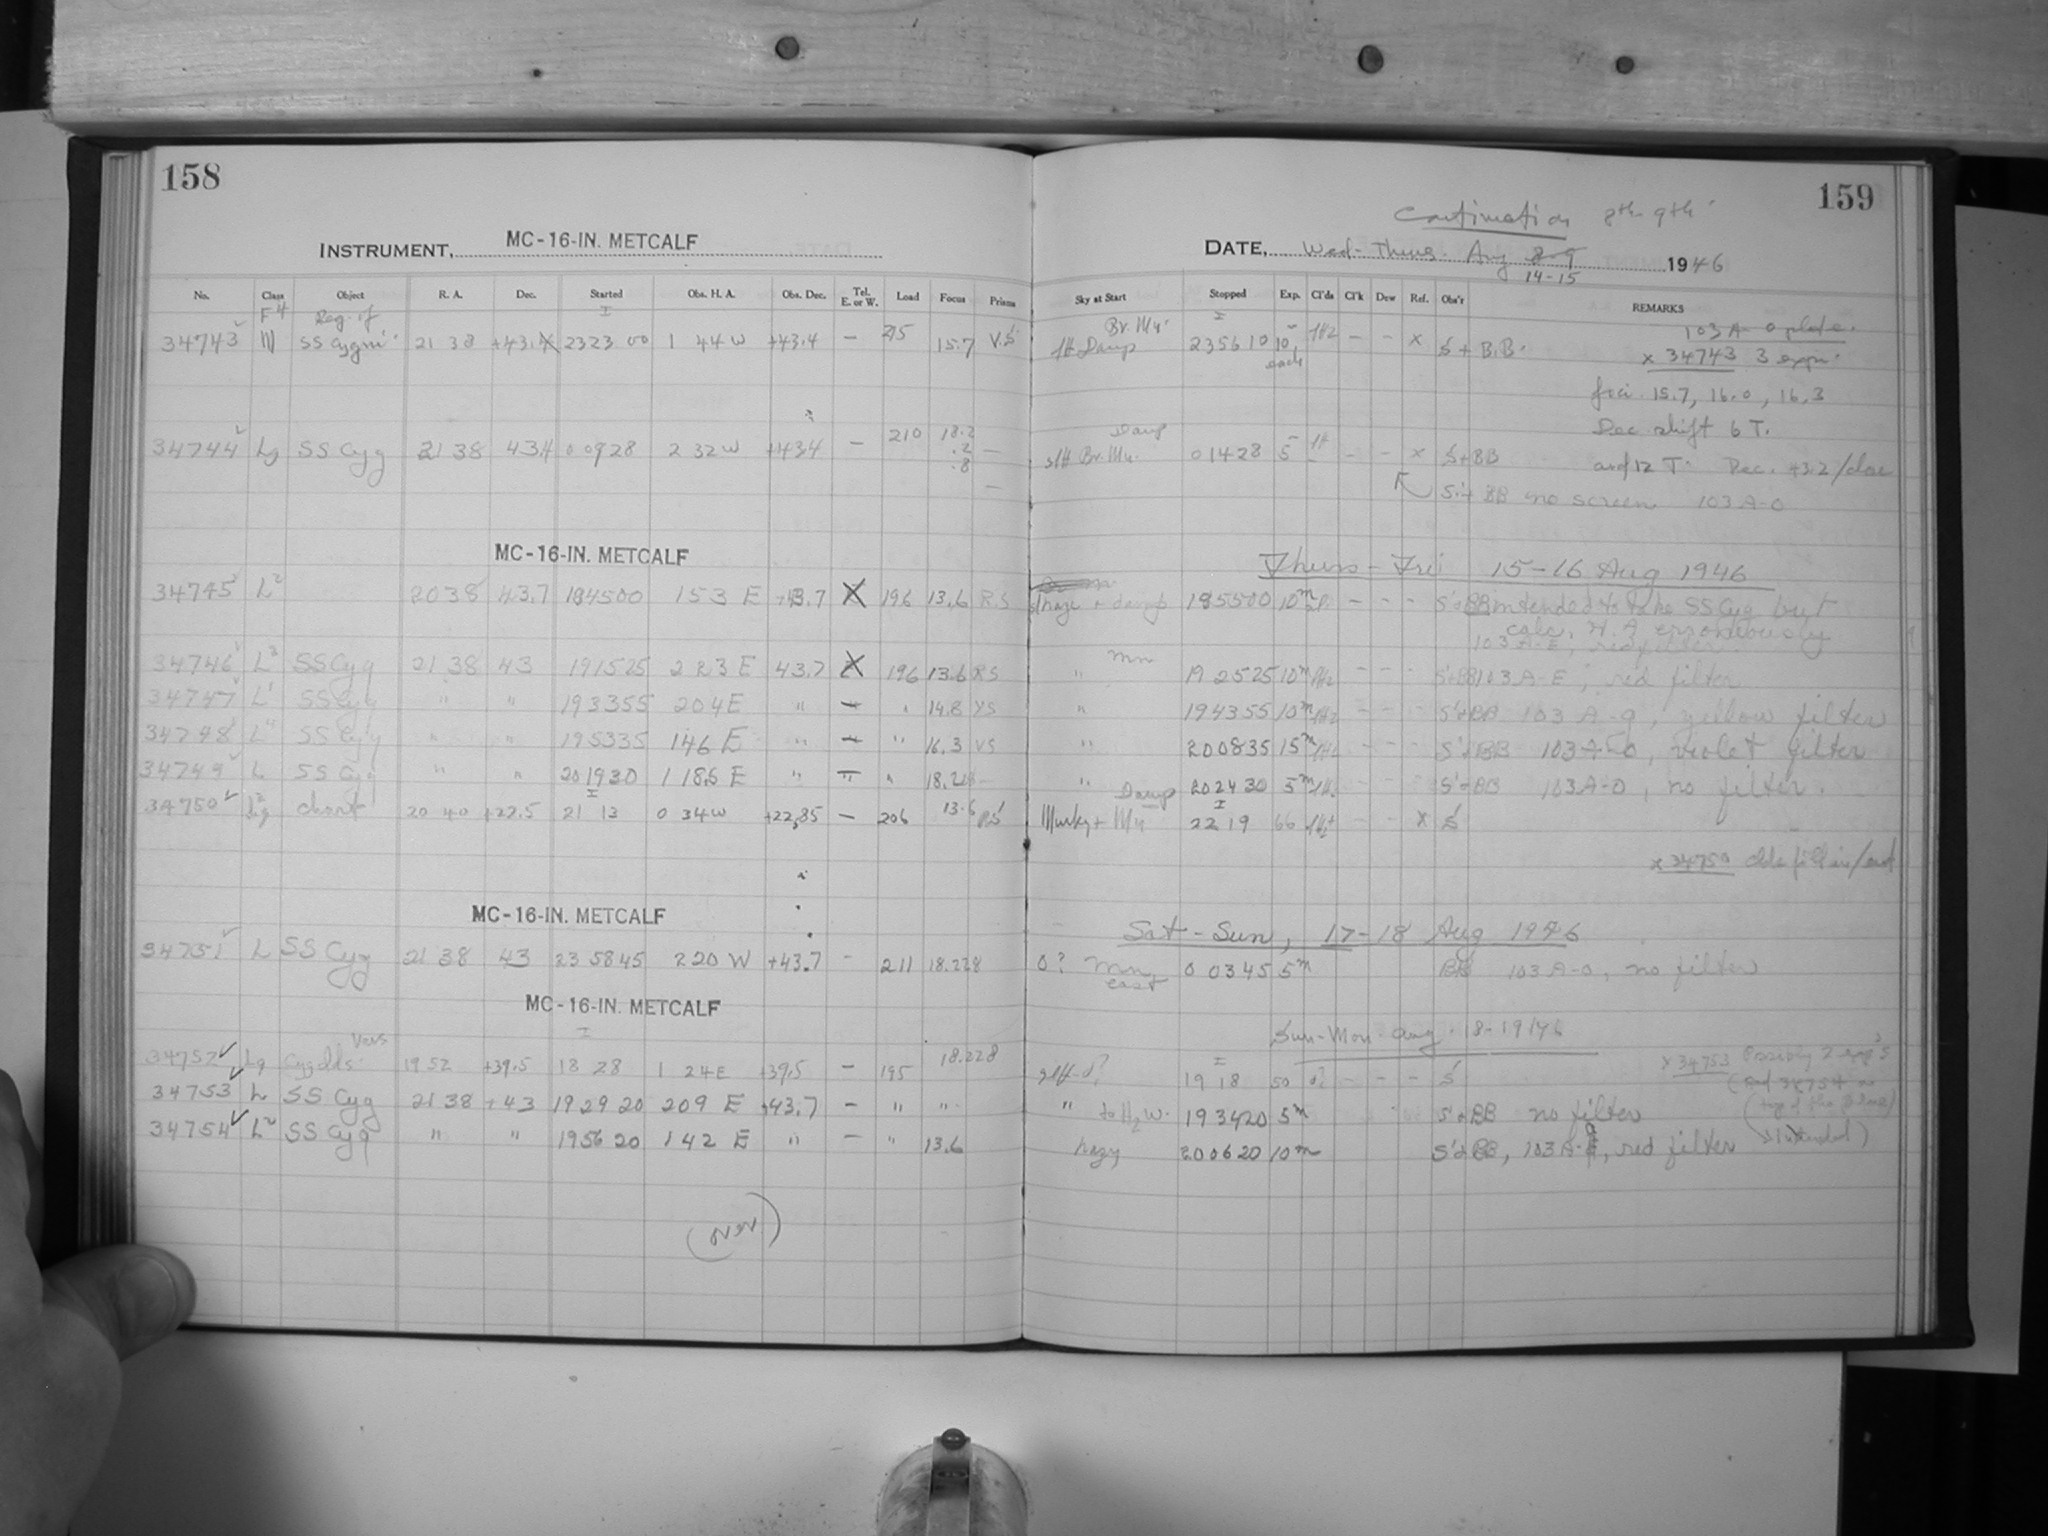 158
INSTRUMENT, MC-16-IN. METCALF
No. Class Object R. A. Dec. Started Obs. H. A. Obs. Dec. Tel. E. or W. Load Focus Prisms
34743 SS Cygni 21 38 +43.4 2323 00 1 44 W +43.4 — 215 15.7 V.S
34744 SS Cyg 21 38 43.4 0 09 28 2 32 W +43.4 — 210 18.2 .2 .8 —
MC-16-IN. METCALF
34745 L2 20 38 43.7 184500 1 53 E +43.7 X 196 13.6 R.S
34746 L2 SS Cyg 21 38 43 191525 2 23 E 43.7 X 196 13.6 RS
34747 L1 SS Cyg " " 193355 204 E " — " 14.8 YS
34748 L4 SS Cyg " " 195335 146 E " — " 16.3 VS
34749 L SS Cyg " " 201930 1 18.5 E " — " 18.228 —
34750 20 40 +22.5 21 13 0 34 W +22.85 — 206 13.6 RS
MC-16-IN. METCALF
34751 L SS Cyg 21 38 43 23 58 45 2 20 W +43.7 - 211 18.228
MC-16-IN. METCALF
34752 19 52 +39.5 18 28 1 24 E +39.5 — 195 18.228
34753 L SS Cyg 21 38 +43 19 29 20 209 E +43.7 — " "
34754 L2 SS Cyg " " 1956 20 1 42 E " — " 13.6
(over)
159
Continuation 8th-9th
DATE, Wed-Thurs. Aug 8-9 1946
14-15
Sky at Start Stopped Exp. Cl'ds Cl'k Dew Ref. Obs'r REMARKS
Br. Mn. 235610 10 each — - x S + B.B. 103 A-O plate.
x 34743 3 expn.
foci 15.7, 16.0, 16.3
Dec. shift 6 T.
Damp
Br. Mn. 0 14 28 5 - - x S+BB and 12 T. Dec. 43.2/
S+BB no screen 103 A-O
Thurs-Fri 15-16 Aug 1946
haze + damp 185500 10m — - - S+BB intended to take SS Cyg but
calc. H.A. erroneously
103 A-E, red filter
" mn 192525 10m - - - S+BB 103 A-E, red filter
" 194355 10m S+BB 103 A-g, yellow filter
" 200835 15m - - - S+BB 103 A-O, violet filter
" 202430 5m S+BB 103 A-O, no filter.
Damp
Murky + Mn 22 19 66 - - X S
x 34750
Sat-Sun, 17-18 Aug 1946
0? mn east 0 03 45 5m BB 103 A-O, no filter
Sun-Mon. Aug. 18-19/46
19 18 50 - - - S x 34753 Possibly 2 exp's
" to W. 193420 5m S+BB no filter
hazy 200620 10m S+BB, 103A-E, red filter